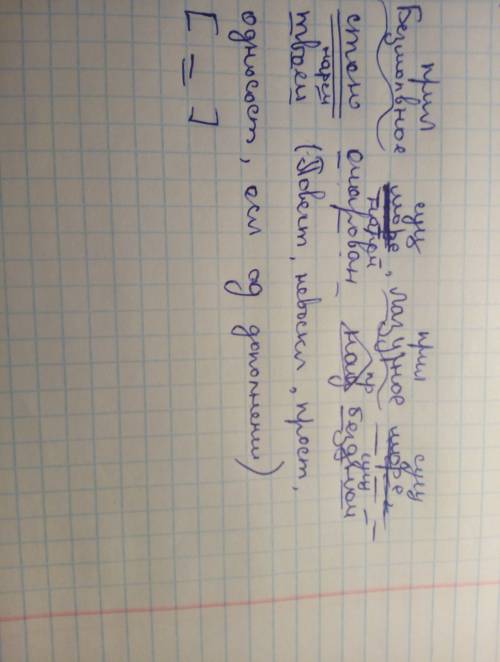 прил сущ прил сущ
Безмолвное море, лазурное море
пр сущ
стою очарован над бездной
нареч
твоей (Повест, невоскл, прост,
односост, осл од дополнении)
[ = ]